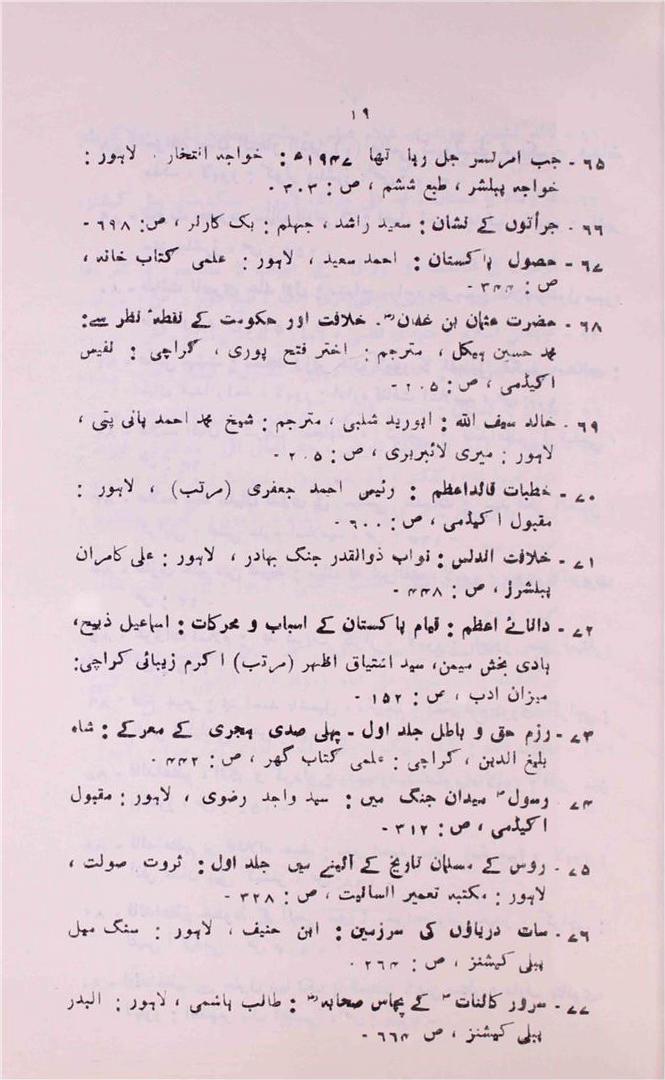 ۱۹
۶۵ - جب امرتسر جل رہا تھا ۱۹۴۷ء : خواجہ افتخار ، لاہور :
خواجہ پبلشر ، طبع ششم ، ص : ۳۰۳ -
۶۶ - جرأتوں کے نشان : سعید راشد ، جہلم : بک کارنر ، ص : ۶۹۸ -
۶۷ - حصول پاکستان : احمد سعید ، لاہور : علمی کتاب خانہ ،
ص : ۳۴۴ -
۶۸ - حضرت عثمان بن عفان رض خلافت اور حکومت کے نقطہ نظر سے :
محمد حسین ہیکل ، مترجم : اختر فتح پوری ، کراچی : نفیس
اکیڈمی ، ص : ۲۰۵ -
۶۹ - خالد سیف اللہ : ابوزید شلبی ، مترجم : شیخ محمد احمد پانی پتی ،
لاہور : میری لائبریری ، ص : ۲۰۵ -
۷۰ - خطبات قائداعظم : رئیس احمد جعفری (مرتب) ، لاہور :
مقبول اکیڈمی ، ص : ۶۰۰ -
۷۱ - خلافت اندلس : نواب ذوالقدر جنگ بہادر ، لاہور : علی کامران
پبلشرز ، ص : ۴۴۸ -
۷۲ - دانائے اعظم : قیام پاکستان کے اسباب و محرکات : اسماعیل ذبیح ،
ہادی بخش میمن، سید اشتیاق اظہر (مرتب) اکرم زیبائی کراچی :
میزان ادب ، ص : ۱۵۲ -
۷۳ - رزم حق و باطل جلد اول - پہلی صدی ہجری کے معرکے : شاہ
بلیغ الدین ، کراچی : علمی کتاب گھر ، ص : ۴۴۲ -
۷۴ - رسول ؐ میدان جنگ میں : سید واجد رضوی ، لاہور : مقبول
اکیڈمی ، ص : ۳۱۲ -
۷۵ - روس کے مسلمان تاریخ کے آئینے میں جلد اول : ثروت صولت ،
لاہور : مکتبہ تعمیر انسانیت ، ص : ۳۲۸ -
۷۶ - سات دریاؤں کی سرزمین : ابن حنیف ، لاہور : سنگ میل
پبلی کیشنز ، ص : ۲۶۴ -
۷۷ - سرور کائنات ؐ کے پچاس صحابہ رض : طالب ہاشمی ، لاہور : البدر
پبلی کیشنز ، ص ۶۶۴ -